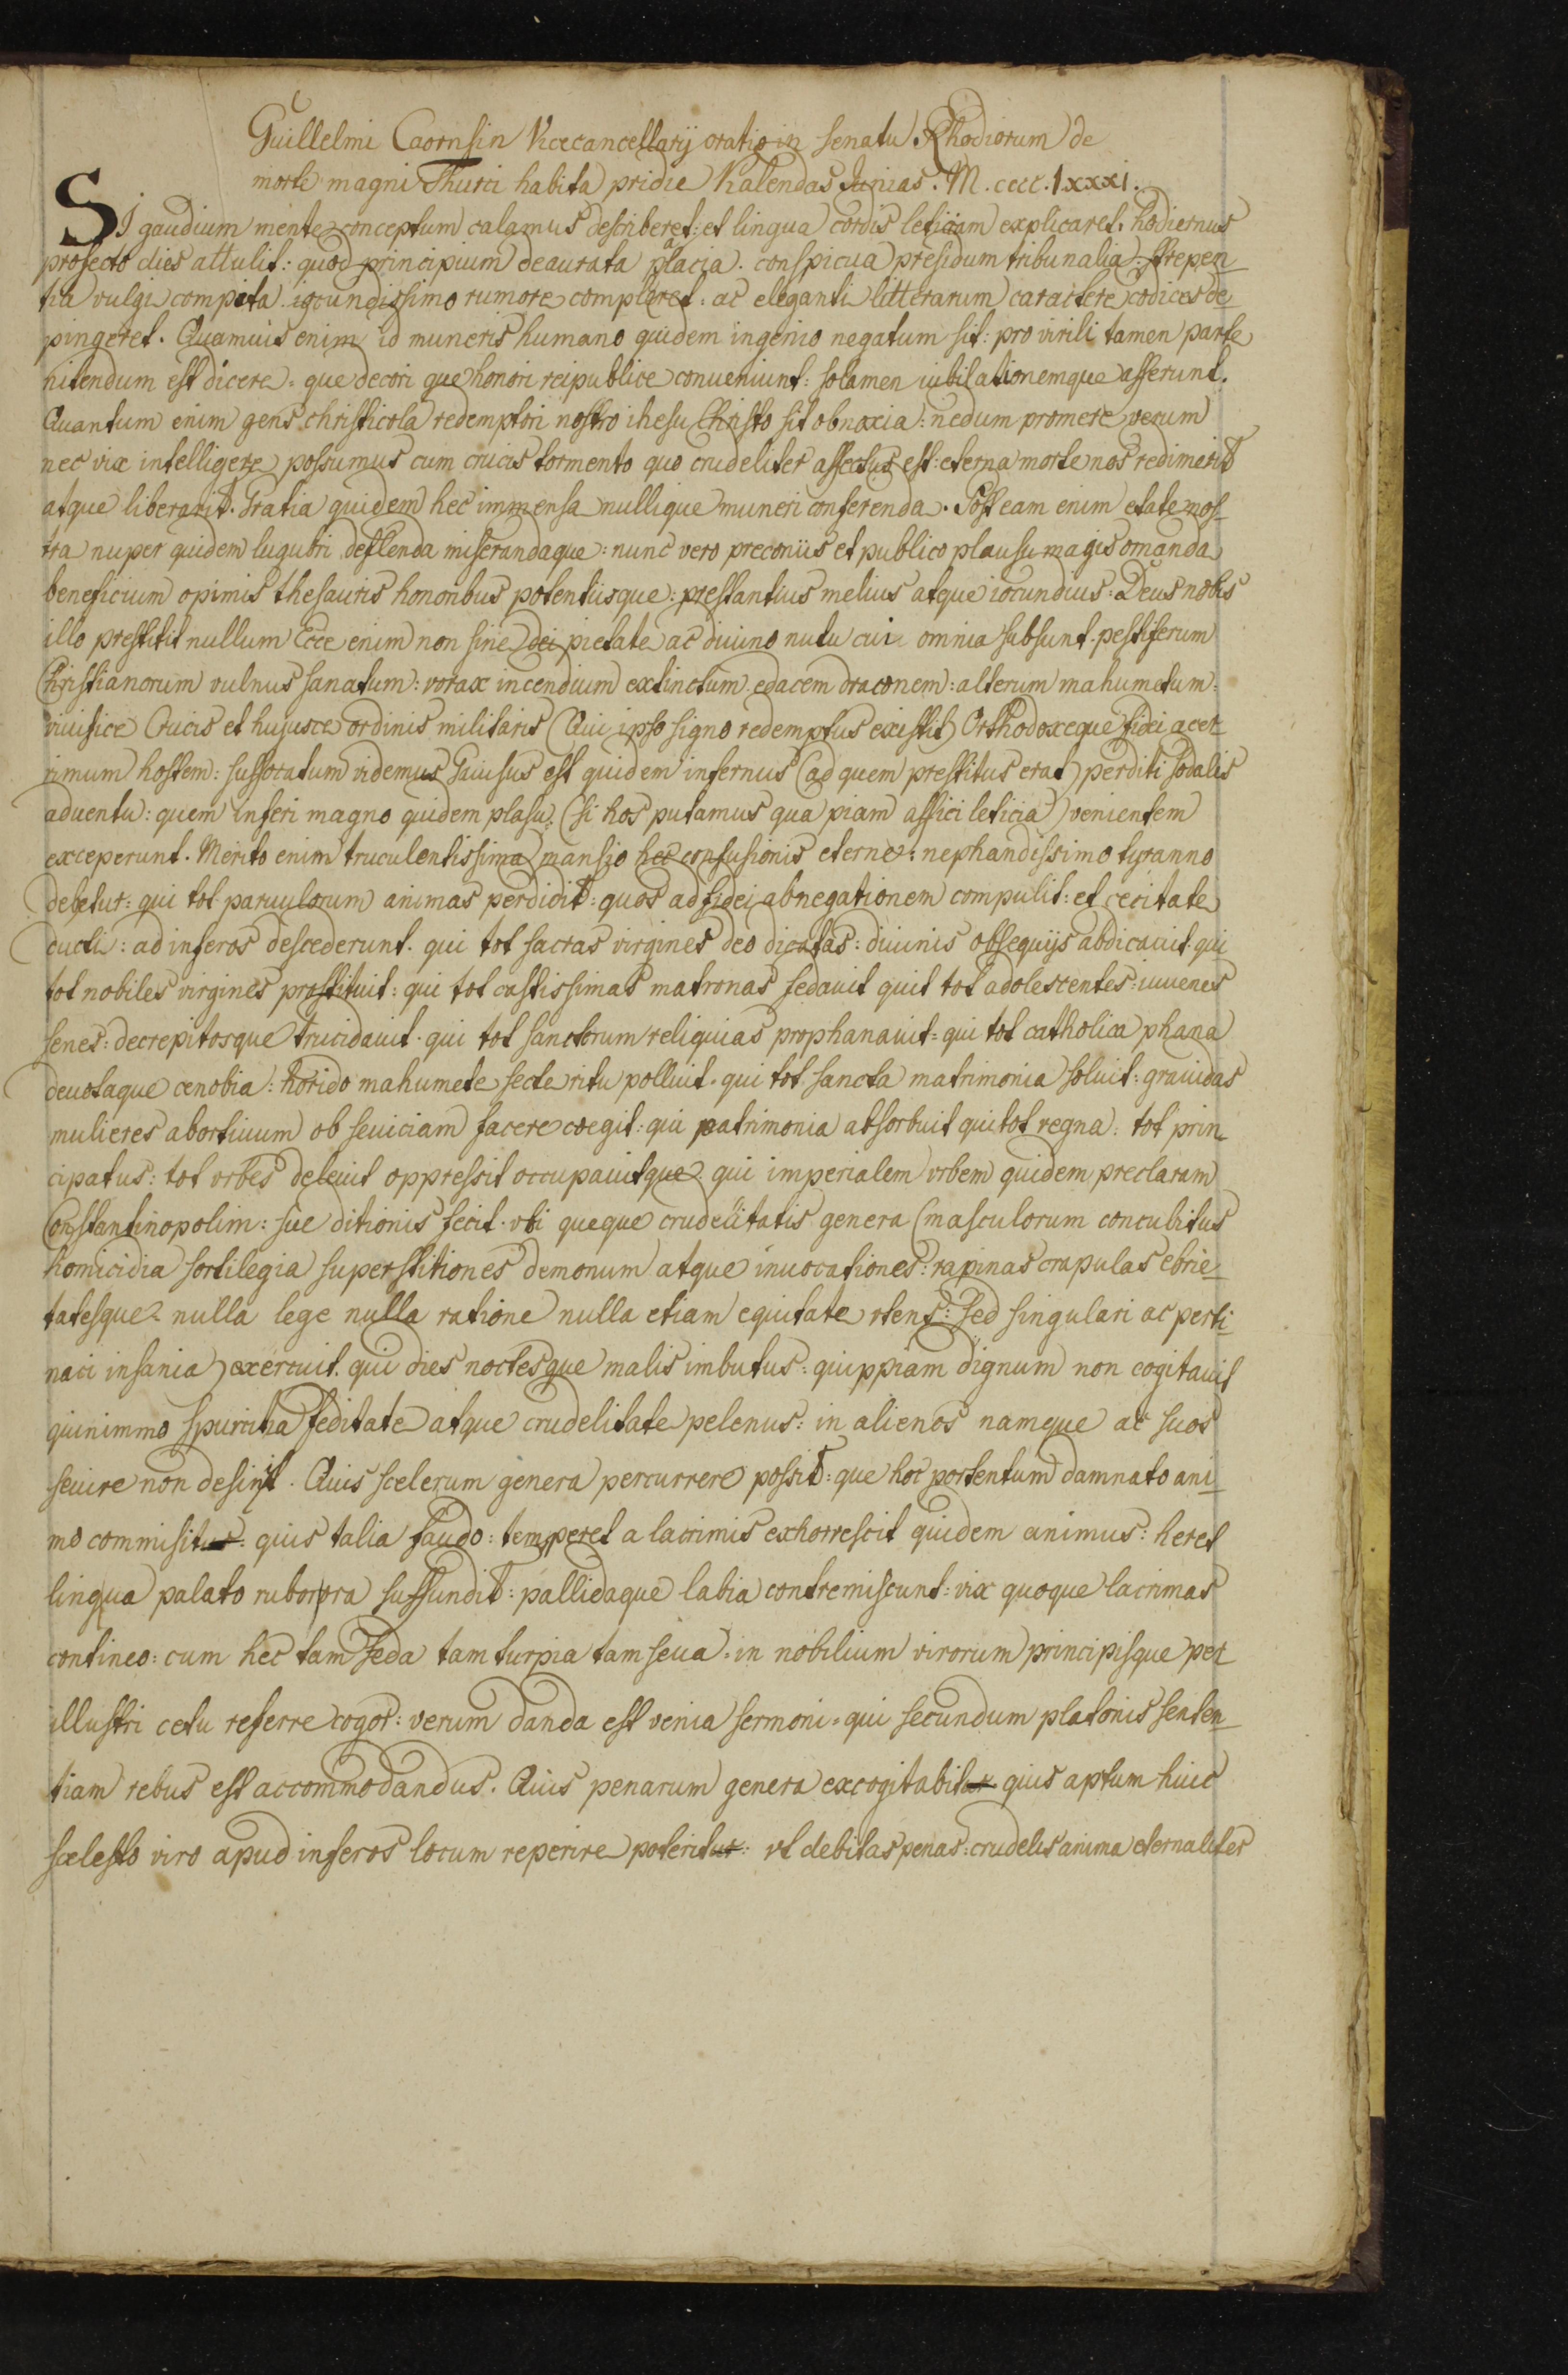 Guillelmi Caornsin Vicecancellarij oratio in senatu Rhodiorum de
morte magni Thurci habita pridie Kalendas Junias. M. cccc. lxxxi.
SI gaudium mente conceptum calamus describeret: et lingua cordis leticiam explicaret. hodiernus
profecto dies attulit: quod principium deaurata placia. conspicua presidum tribunalia: strepen_
tia vulgi compita iocundissimo rumore compleret: ac eleganti litterarum caractere codices de_
pingeret. Quamuis enim id muneris humano quidem ingenio negatum sit: pro virili tamen parte
nitendum est dicere: que decori que honori reipublice conueniunt: solamen iubilationemque afferunt.
Quantum enim gens christicola redemptori nostro ihesu Christo sit obnoxia: nedum promere verum
nec vix intelligere possumus cum crucis tormento quo crudeliter affectus est: eterna morte nos redimerit
atque liberarit. Gratia quidem hec immensa nullique muneri conferenda. Post eam enim etate nos_
tra nuper quidem lugubri deflenda miserandaque: nunc vero preconiis et publico plausu magis ornanda
beneficium opimis thesauris honoribus potentiisque: prestantius melius atque iocundius: Deus nobis
illo prestitit nullum Ecce enim non sine dei pietate ac diuino nutu cui omnia subsunt. pestiferum
Christianorum vulnus sanatum: vorax incendium extinctum edacem draconem: alterum mahumetum:
viuifice Crucis et hujusce ordinis militaris (Qui ipso signo redemptus existit) Orthodoxeque fidei acer_
rimum hostem: suffocatum videmus Gauisus est quidem infernus (ad quem prestitus erat) perditi sodalis
aduentu: quem inferi magno quidem plasu: (si hos putamus qua piam affici leticia) venientem
exceperunt. Merito enim truculentissima mansio hec confusionis eterne: nephandissimo tyranno
debetur: qui tot paruulorum animas perdidit: quos ad fidei abnegationem compulit: et cecitate
ducti: ad inferos descederunt. qui tot sacras virgines deo dicatas: diuinis obsequijs abdicauit qui
tot nobiles virgines prostituit: qui tot castissimas matronas fedauit quit tot adolescentes: iuuenes
senes: decrepitosque trucidauit. qui tot sanctorum reliquias prophanauit: qui tot catholica phana
deuotaque cenobia: horido mahumete secte ritu polluit. qui tot sancta matrimonia soluit: grauidas
mulieres abortiuum ob seuiciam facere coegit: qui patrimonia absorbuit qui tot regna: tot prin_
cipatus: tot vrbes deleuit oppressit occupauitque: qui imperialem vrbem quidem preclaram
Constantinopolim: sue ditionis fecit. vbi queque crudelitatis genera (masculorum concubitus
homicidia sortilegia superstitiones demonum atque inuocationes: rapinas crapulas ebrie_
tatesque nulla lege nulla ratione nulla etiam equitate vtens: sed singulari ac perti_
naci insania) exercuit. qui dies noctesque malis imbutus: quippiam dignum non cogitauit
quinimmo spurcitia feditate atque crudelitate pelenus: in alienos namque ac suos
seuire non desinit. Quis scelerum genera percurrere possit: que hoc portentum damnato ani_
mo commisit: quis talia faudo: temperet a lacrimis exhorrescit quidem animus: heret
lingua palato rubor ora suffundit: pallidaque labia contremiscunt: vix quoque lacrimas
contineo: cum hec tam feda tam turpia tam seua: in nobilium virorum principisque per_
illustri cetu referre cogor: verum danda est venia sermoni: qui secundum platonis senten_
tiam rebus est accommodandus. Quis penarum genera excogitabit quis aptum huic
scelesto viro apud inferos locum reperire poterit: vt debitas penas: crudelis anima eternaliter